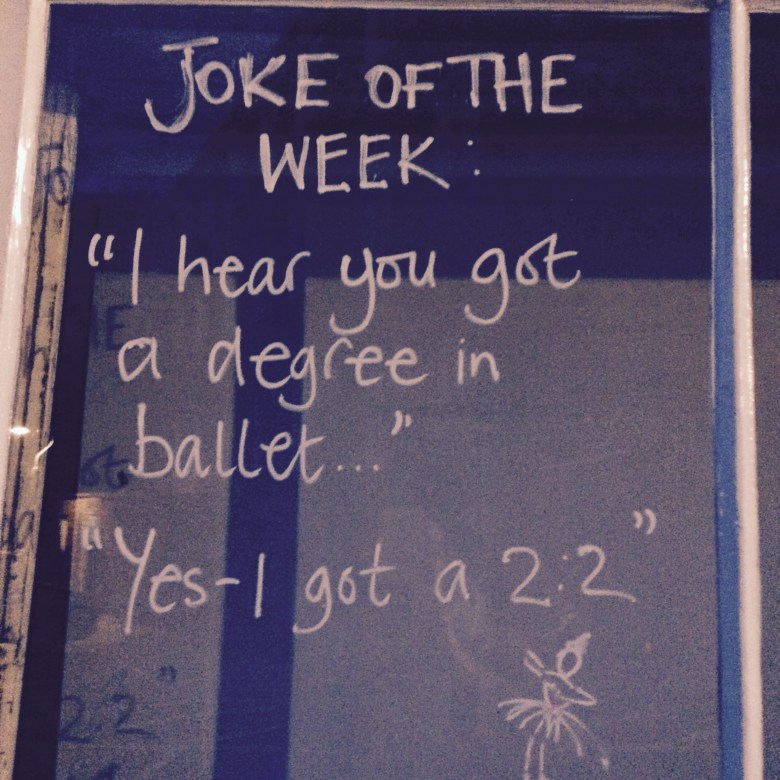 JOKE OF THE
WEEK:
"I hear you got
a degree in
ballet..."
"Yes-I got a 2:2"